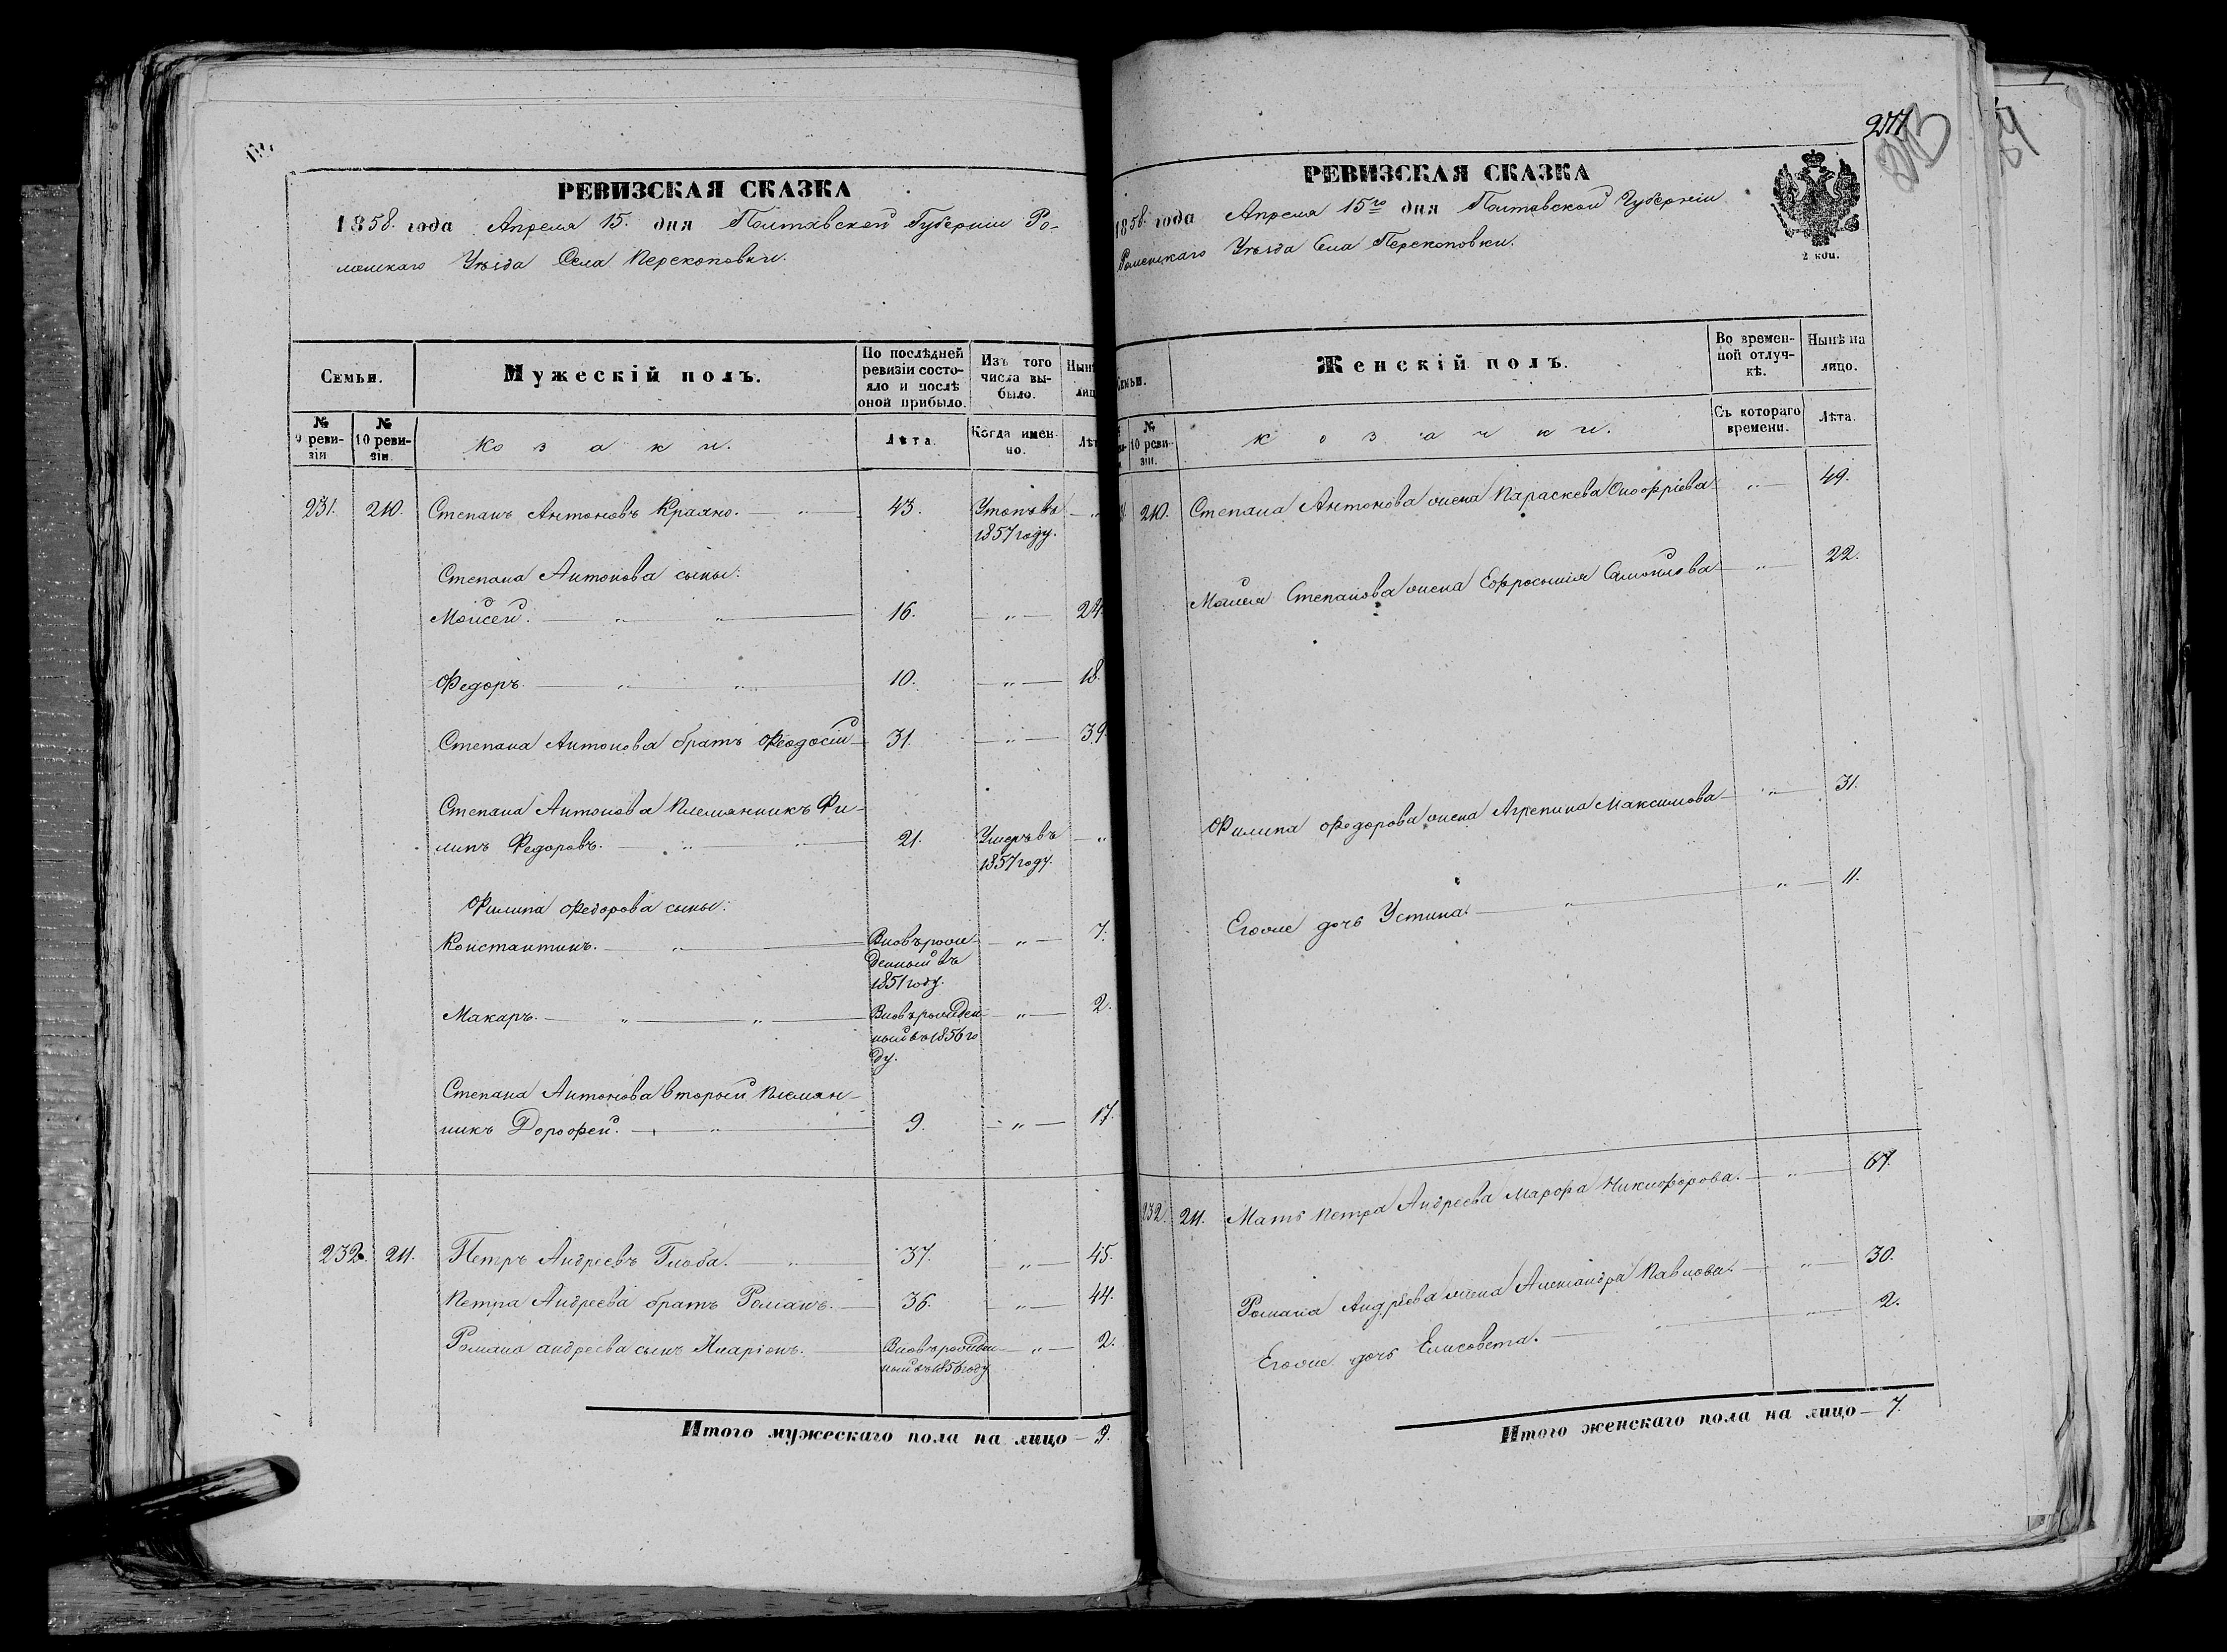 РЕВИЗСКАЯ СКАЗКА
1858. года Апреля 15. дня Полтавской Губерніи Ро-
менскаго Уѣзда Села Перекоповки.
Семьи.
Мужескій полъ.
По послѣдней ревизіи состояло и послѣ оной прибыло.
Изъ того числа выбыло.
Нынѣ лиц
№ 9 реви-зіи
№ 10 реви-зіи.
Козаки.
Лѣта.
Когда имен-но.
Лѣт
231. 210. Степанъ Антоновъ Краяно. — „ — 43. Утопъ въ —„
1857 году.
Степана Антонова сыны:
Моѵсей. — „ — „ — 16. —„— 24.
Федоръ. — „ — „ — 10. —„— 18.
Степана Антонова братъ Феодосій — 31. —„— 39.
Степана Антонова Племянникъ Фи-
липъ Федоровъ. — „ — „ — 21. Умеръ въ —„
1857 году.
Филипа Федорова сыны:
Константинъ. — „ — Вновърож- —„— 7.
денный въ
1851 году.
Макаръ. — „ — „ — Вновърожден- —„— 2.
ный въ 1856 го
ду.
Степана Антонова второй племян-
никъ Дорофей. — „ — 9. —„— 17.
232. 211. Петръ Андреевъ Глоба. — „ — 37. —„— 45.
Петра Андреева братъ Романъ. — 36. —„— 44.
Романа андреева сынъ Иларіонъ. — Вновърожден- —„— 2.
ный въ 1856 году
Итого мужескаго пола на лицо — 9.
277
РЕВИЗСКАЯ СКАЗКА
1858. года Апреля 15го дня Полтавской Губерніи
Роменскаго Уѣзда Села Перекоповки.
2 коп.
Семьи.
Женскій полъ.
Во времен-ной отлуч-кѣ.
Нынѣ на лицо.
№ 10 реви-зіи.
Козачки.
Съ котораго времени.
Лѣта.
210. Степана Антонова жена Параскева Онофріева — „ — 49.
Моѵсея Степанова жена Ефросинія Самойлова — „ — 22.
Филипа Федорова жена Агрепина Максимова — „ — 31.
Егоже дочь Устина. — „ — „ — 11.
232. 211. Мать Петра Андреева Марфа Никифорова. — „ — 67.
Романа Андреева жена Александра Павлова. — „ — 30.
Егоже дочь Елисовета. — „ — „ — 2.
Итого женскаго пола на лицо — 7.